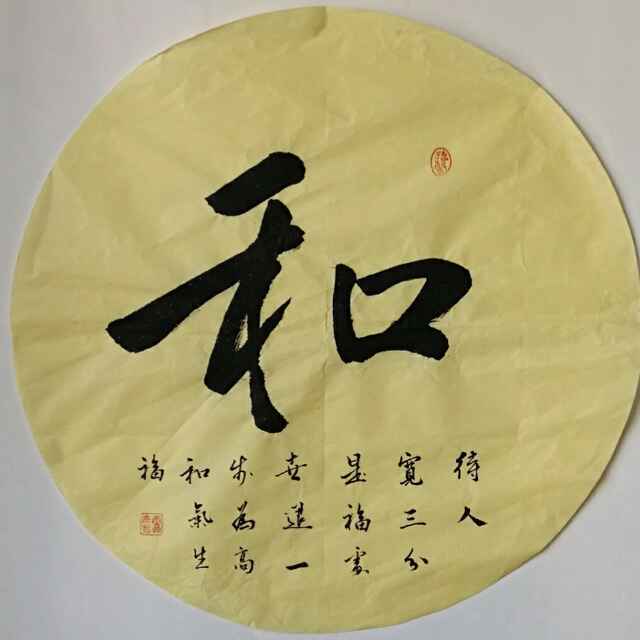 和
待人
寬三分
是福處
世退一
步為高
和氣生
福